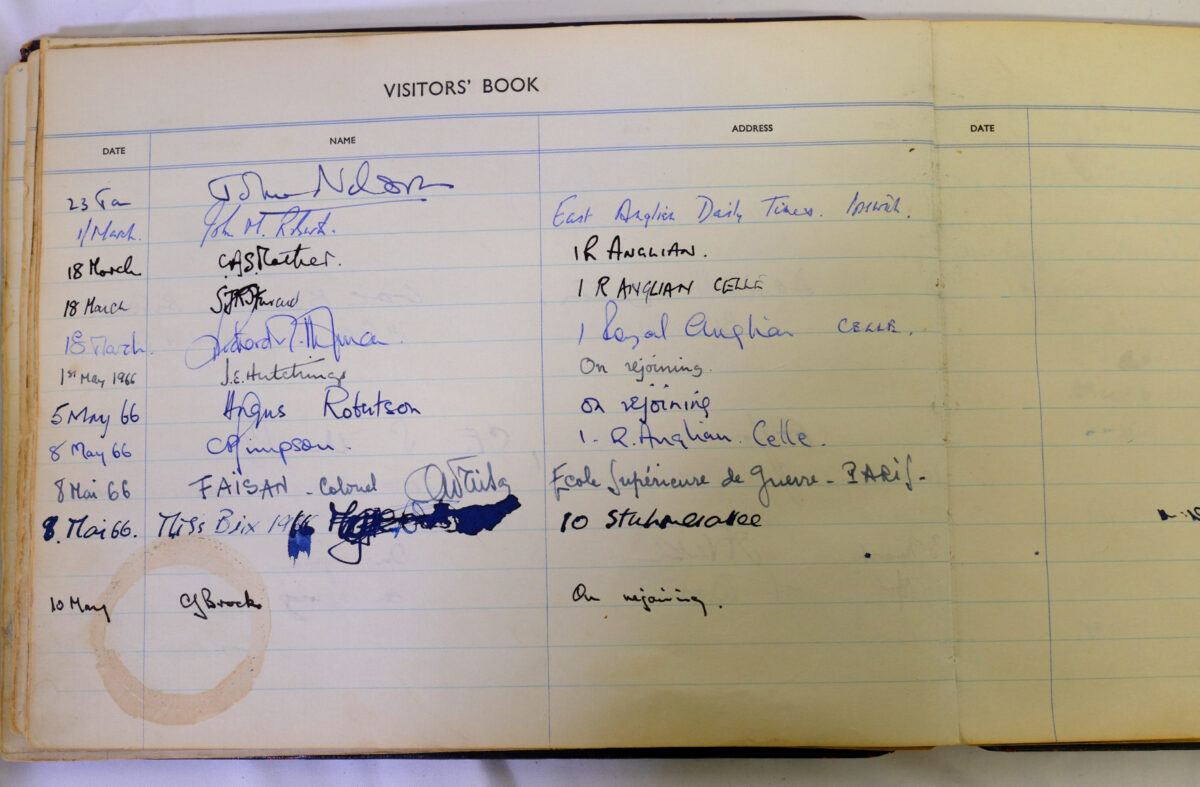 VISITORS' BOOK
DATE NAME ADDRESS DATE
23 Jan John Nelson
1/March. John M. East Anglian Daily Times. Ipswich.
18 March C.A.S. Mather. 1 R ANGLIAN.
18 March 1 R ANGLIAN CELLE
18 March. Richard 1 Royal Anglian CELLE.
1st May 1966 J.E. Hutchings On rejoining.
5 May 66 Angus Robertson on rejoining
8 May 66 Simpson. 1. R. Anglian. Celle.
8 Mai 66 FAISAN - Colonel Ecole Supérieure de Guerre - PARIS -
8. Mai 66. Miss Bix 1966 10
10 May CJ Brocks On rejoining.